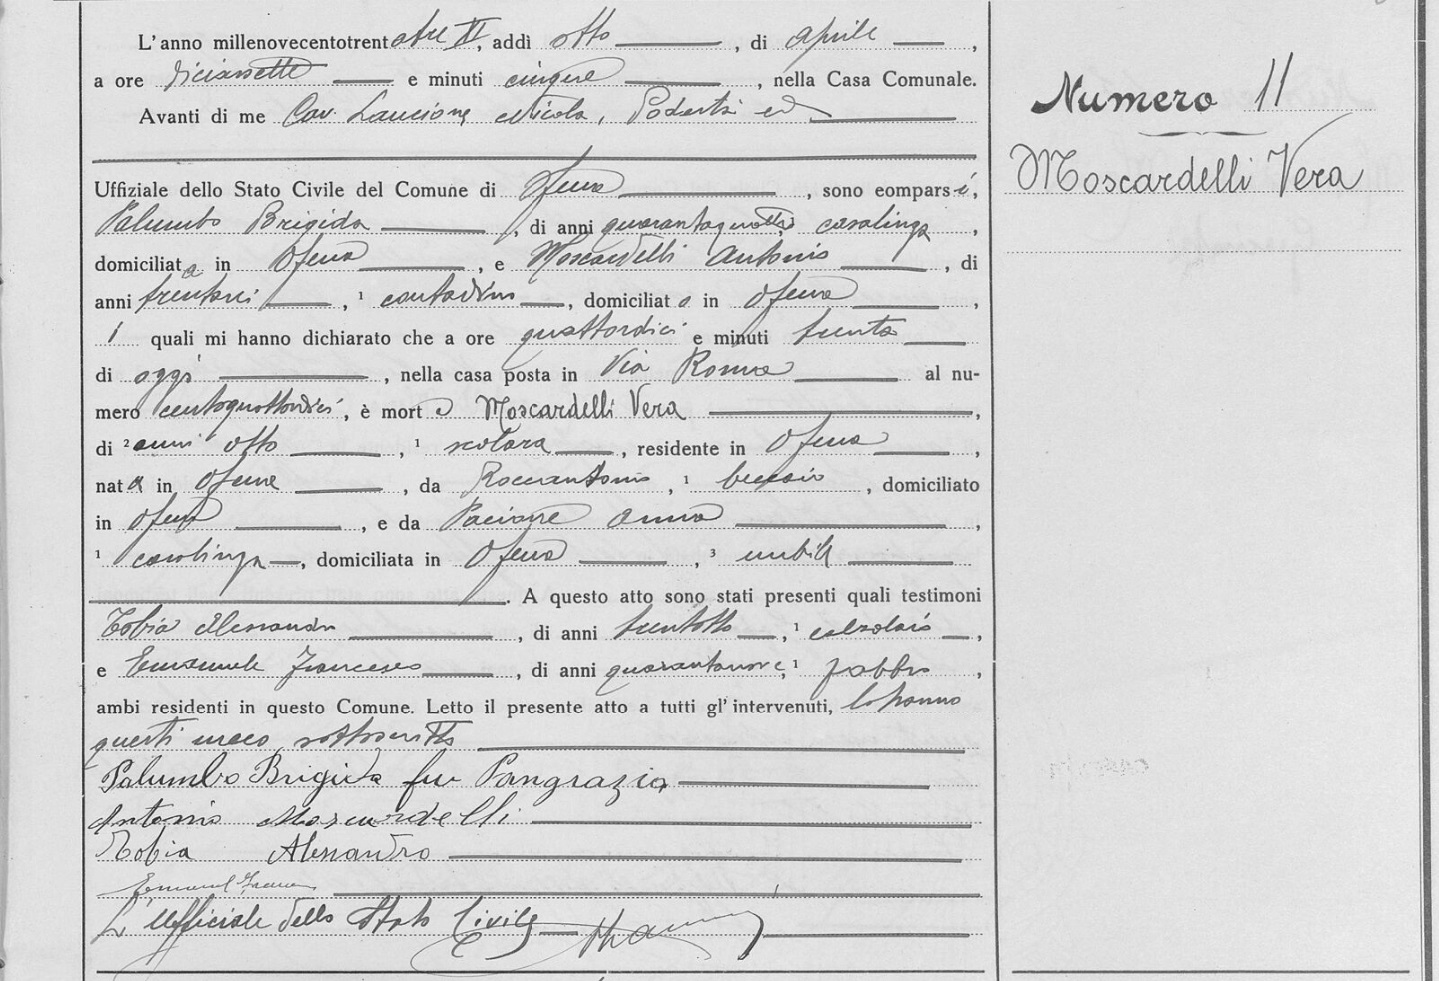 L'anno millenovecentotrentatre XI, addì otto, di aprile,
a ore diciassette e minuti cinque, nella Casa Comunale.
Avanti di me Cav. Laucione Nicola, Podestà ed
Uffiziale dello Stato Civile del Comune di Ofena, sono compars i,
Palumbo Brigida, di anni quarantaquattro, casalinga,
domiciliata in Ofena, e Moscardelli Antonio, di
anni trentasei, ¹ contadino, domiciliato in Ofena,
i quali mi hanno dichiarato che a ore quattordici e minuti trenta
di oggi, nella casa posta in Via Roma al nu-
mero centoquattordici, è morta Moscardelli Vera,
di ² anni otto, ¹ scolara, residente in Ofena,
nata in Ofena, da Roccantonio, ¹, domiciliato
in Ofena, e da Paciane Anna,
¹ casalinga, domiciliata in Ofena, ³ nubile
. A questo atto sono stati presenti quali testimoni
Tobia Alessandro, di anni trentotto, ¹ calzolaio,
e Emanuele Francesco, di anni quarantanove, ¹ fabbro,
ambi residenti in questo Comune. Letto il presente atto a tutti gl'intervenuti, lo hanno
questi meco sottoscritto
Palumbo Brigida fu Pangrazio
Antonio Moscardelli
Tobia Alessandro
L'Ufficiale dello Stato Civile
Numero 11
Moscardelli Vera